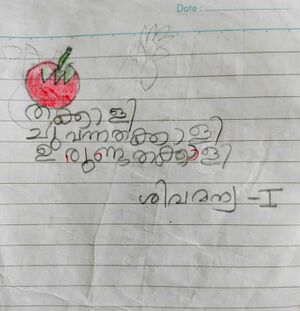 Date :
തക്കാളി
ചുവന്നതക്കാളി
ഉരുണ്ടതക്കാളി
ശിവമന്യ - I